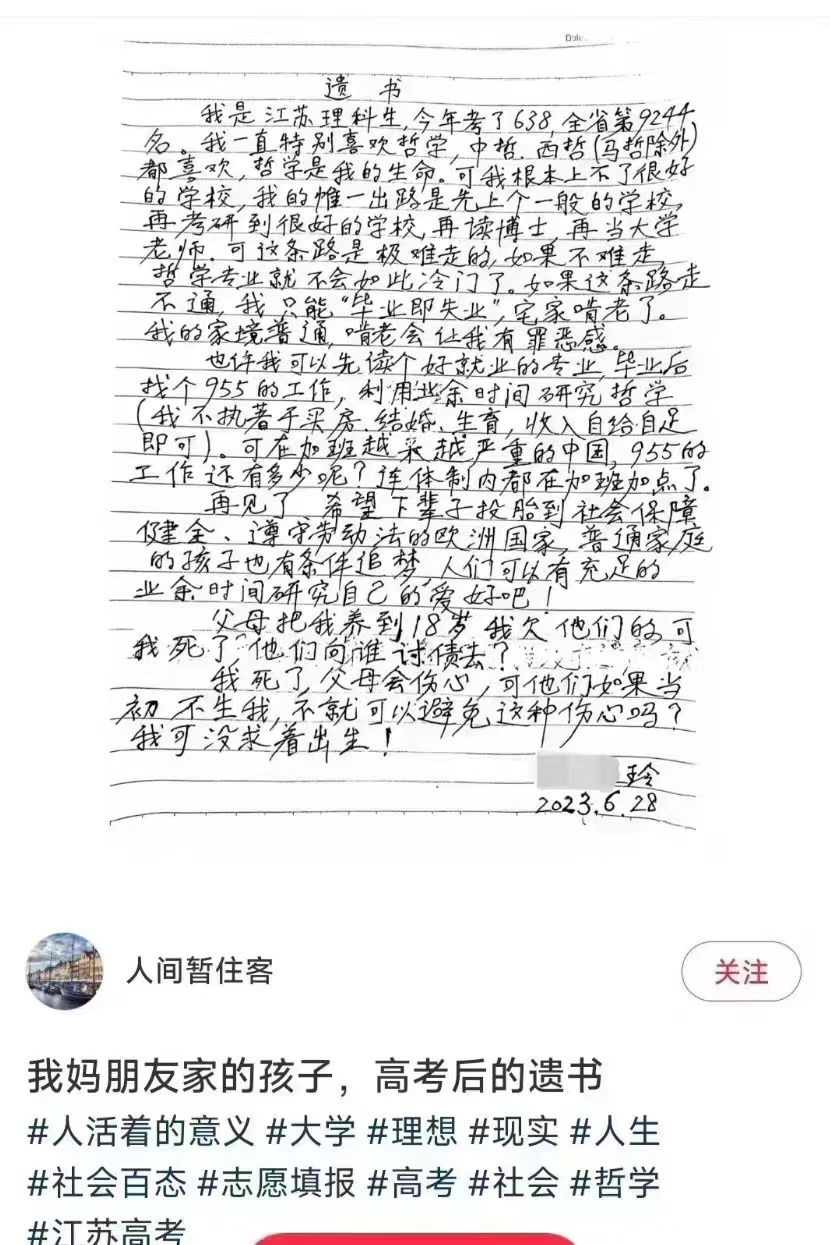 遗书
我是江苏理科生,今年考了638,全省第9244
名。我一直特别喜欢哲学,中哲.西哲(马哲除外)
都喜欢,哲学是我的生命。可我根本上不了很好
的学校,我的惟一出路是先上个一般的学校,
再考研到很好的学校,再读博士,再当大学
老师.可这条路是极难走的,如果不难走,
哲学专业就不会如此冷门了。如果这条路走
不通,我只能“毕业即失业”,宅家啃老了。
我的家境普通,啃老会让我有罪恶感。
也许我可以先读个好就业的专业,毕业后
找个955的工作,利用业余时间研究哲学
(我不执著于买房.结婚、生育,收入自给自足
即可)。可在加班越来越严重的中国,955的
工作还有多少呢?连体制内都在加班加点了。
再见了,希望下辈子投胎到社会保障
健全、遵守劳动法的欧洲国家,普通家庭
的孩子也有条件追梦,人们可以有充足的
业余时间研究自己的爱好吧!
父母把我养到18岁,我欠他们的.可
我死了,他们向谁讨债去?
我死了,父母会伤心,可他们如果当
初不生我,不就可以避免这种伤心吗?
我可没求着出生!
玲
2023.6.28
人间暂住客
关注
我妈朋友家的孩子,高考后的遗书
#人活着的意义 #大学 #理想 #现实 #人生
#社会百态 #志愿填报 #高考 #社会 #哲学
#江苏高考